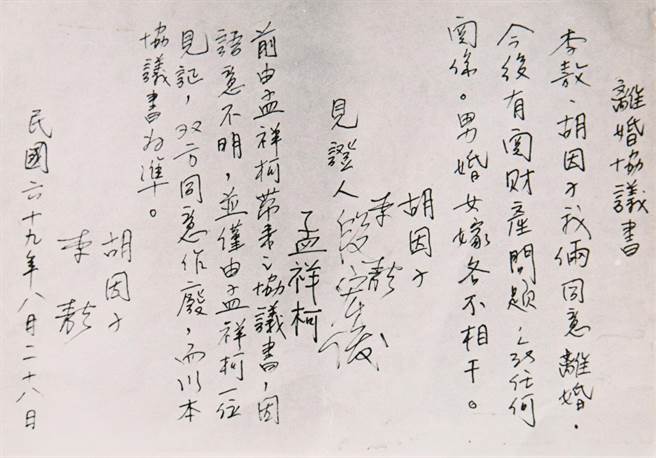 離婚協議書
李敖、胡因子我倆同意離婚。
今後有關財產問題，任何
關係。男婚女嫁各不相干。
胡因子
李敖
見證人 段宏俊
孟祥柯
前由孟祥柯帶來之協議書，因
語意不明，並僅由孟祥柯一位
見証，双方同意作廢，而以本
協議書為準。
胡因子
李敖
民國六十九年八月二十八日